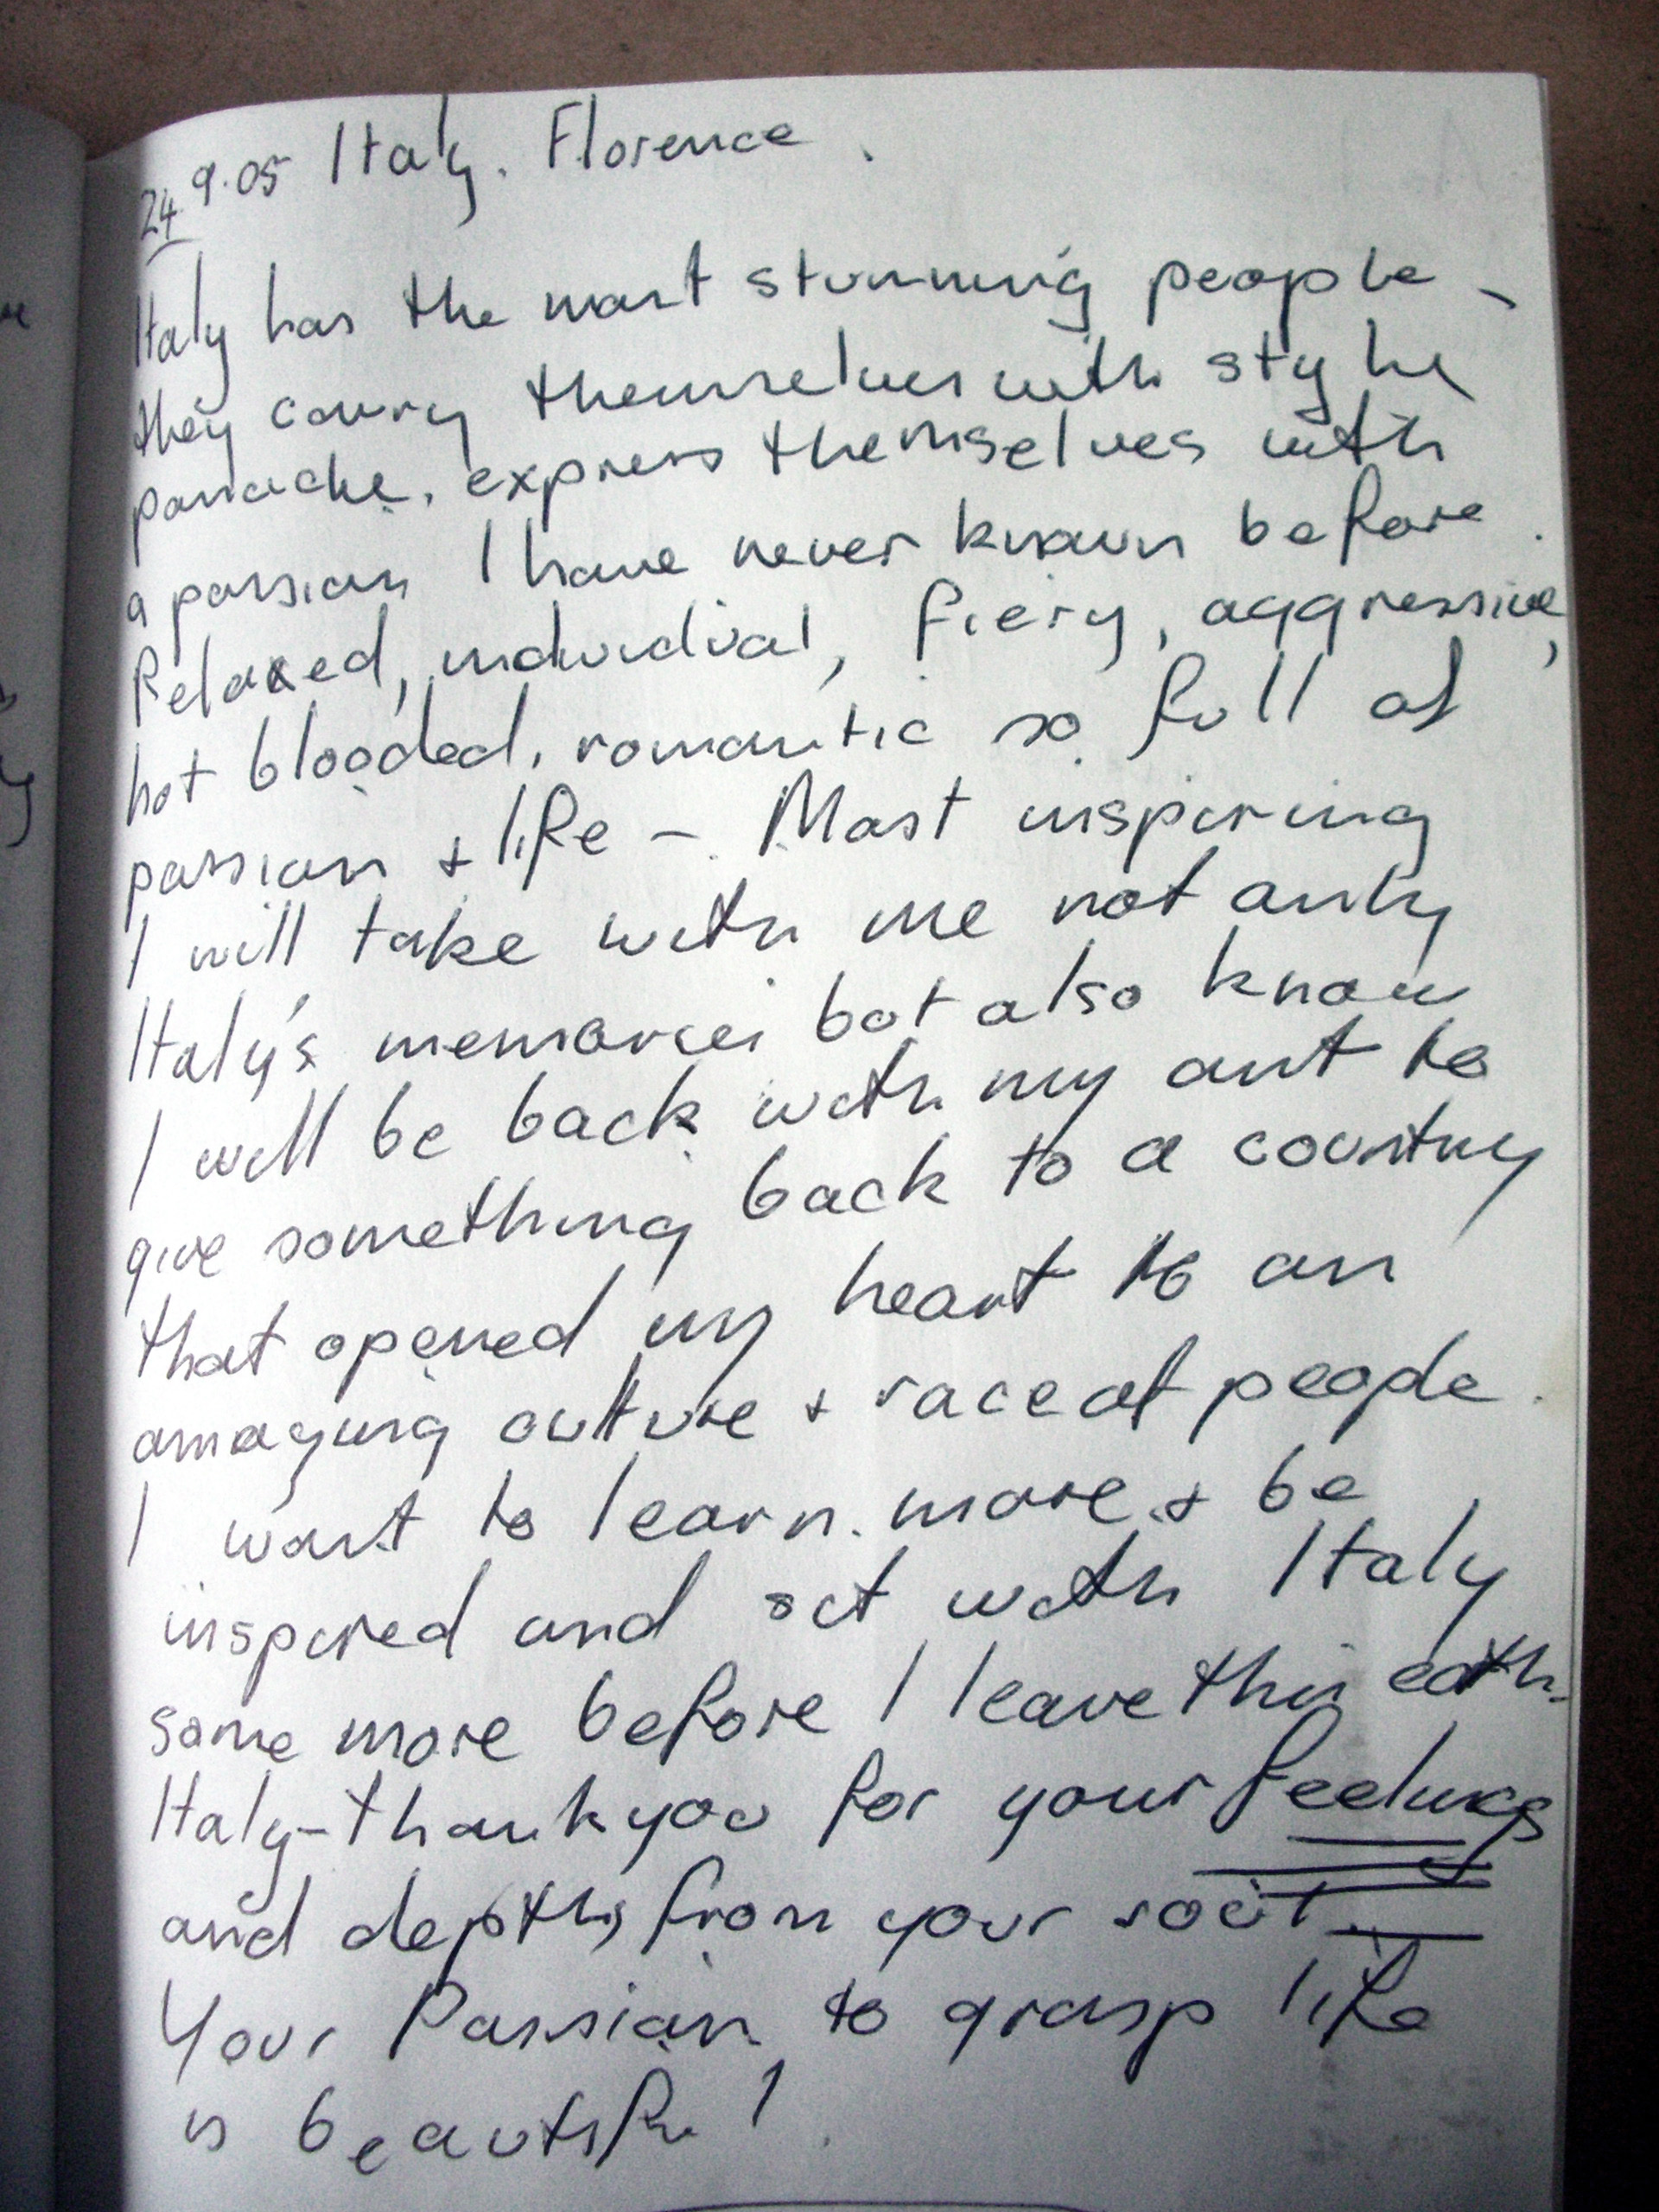 24.9.05 Italy. Florence.
Italy has the most stunning people -
they carry themselves with style
panache, express themselves with
a passion I have never known before.
Relaxed, individual, fiery, aggressive,
hot blooded, romantic so full of
passion + life - Most inspiring
I will take with me not only
Italy's memories but also know
I will be back with my art to
give something back to a country
that opened my heart to an
amazing culture + race of people.
I want to learn more + be
inspired and sit with Italy
some more before I leave this earth.
Italy - thank you for your feelings
and depths from your
Your Passion to grasp life
is beautiful!